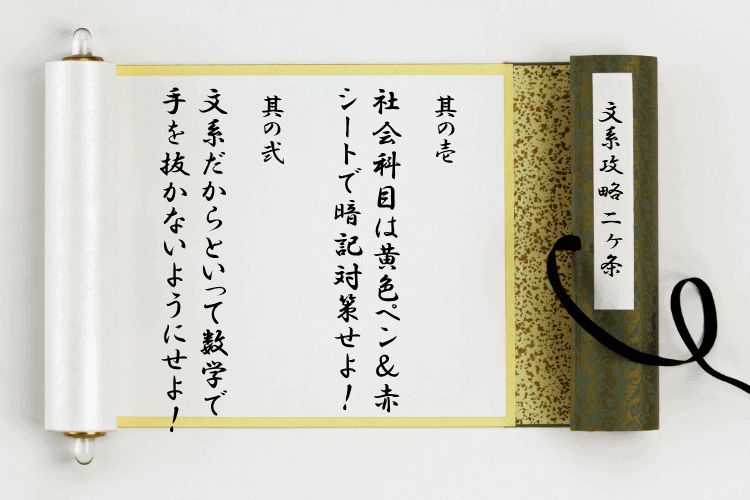 文系攻略二ヶ条
其の壱
社会科目は黄色ペン&赤
シートで暗記対策せよ!
其の弐
文系だからといって数学で
手を抜かないようにせよ!